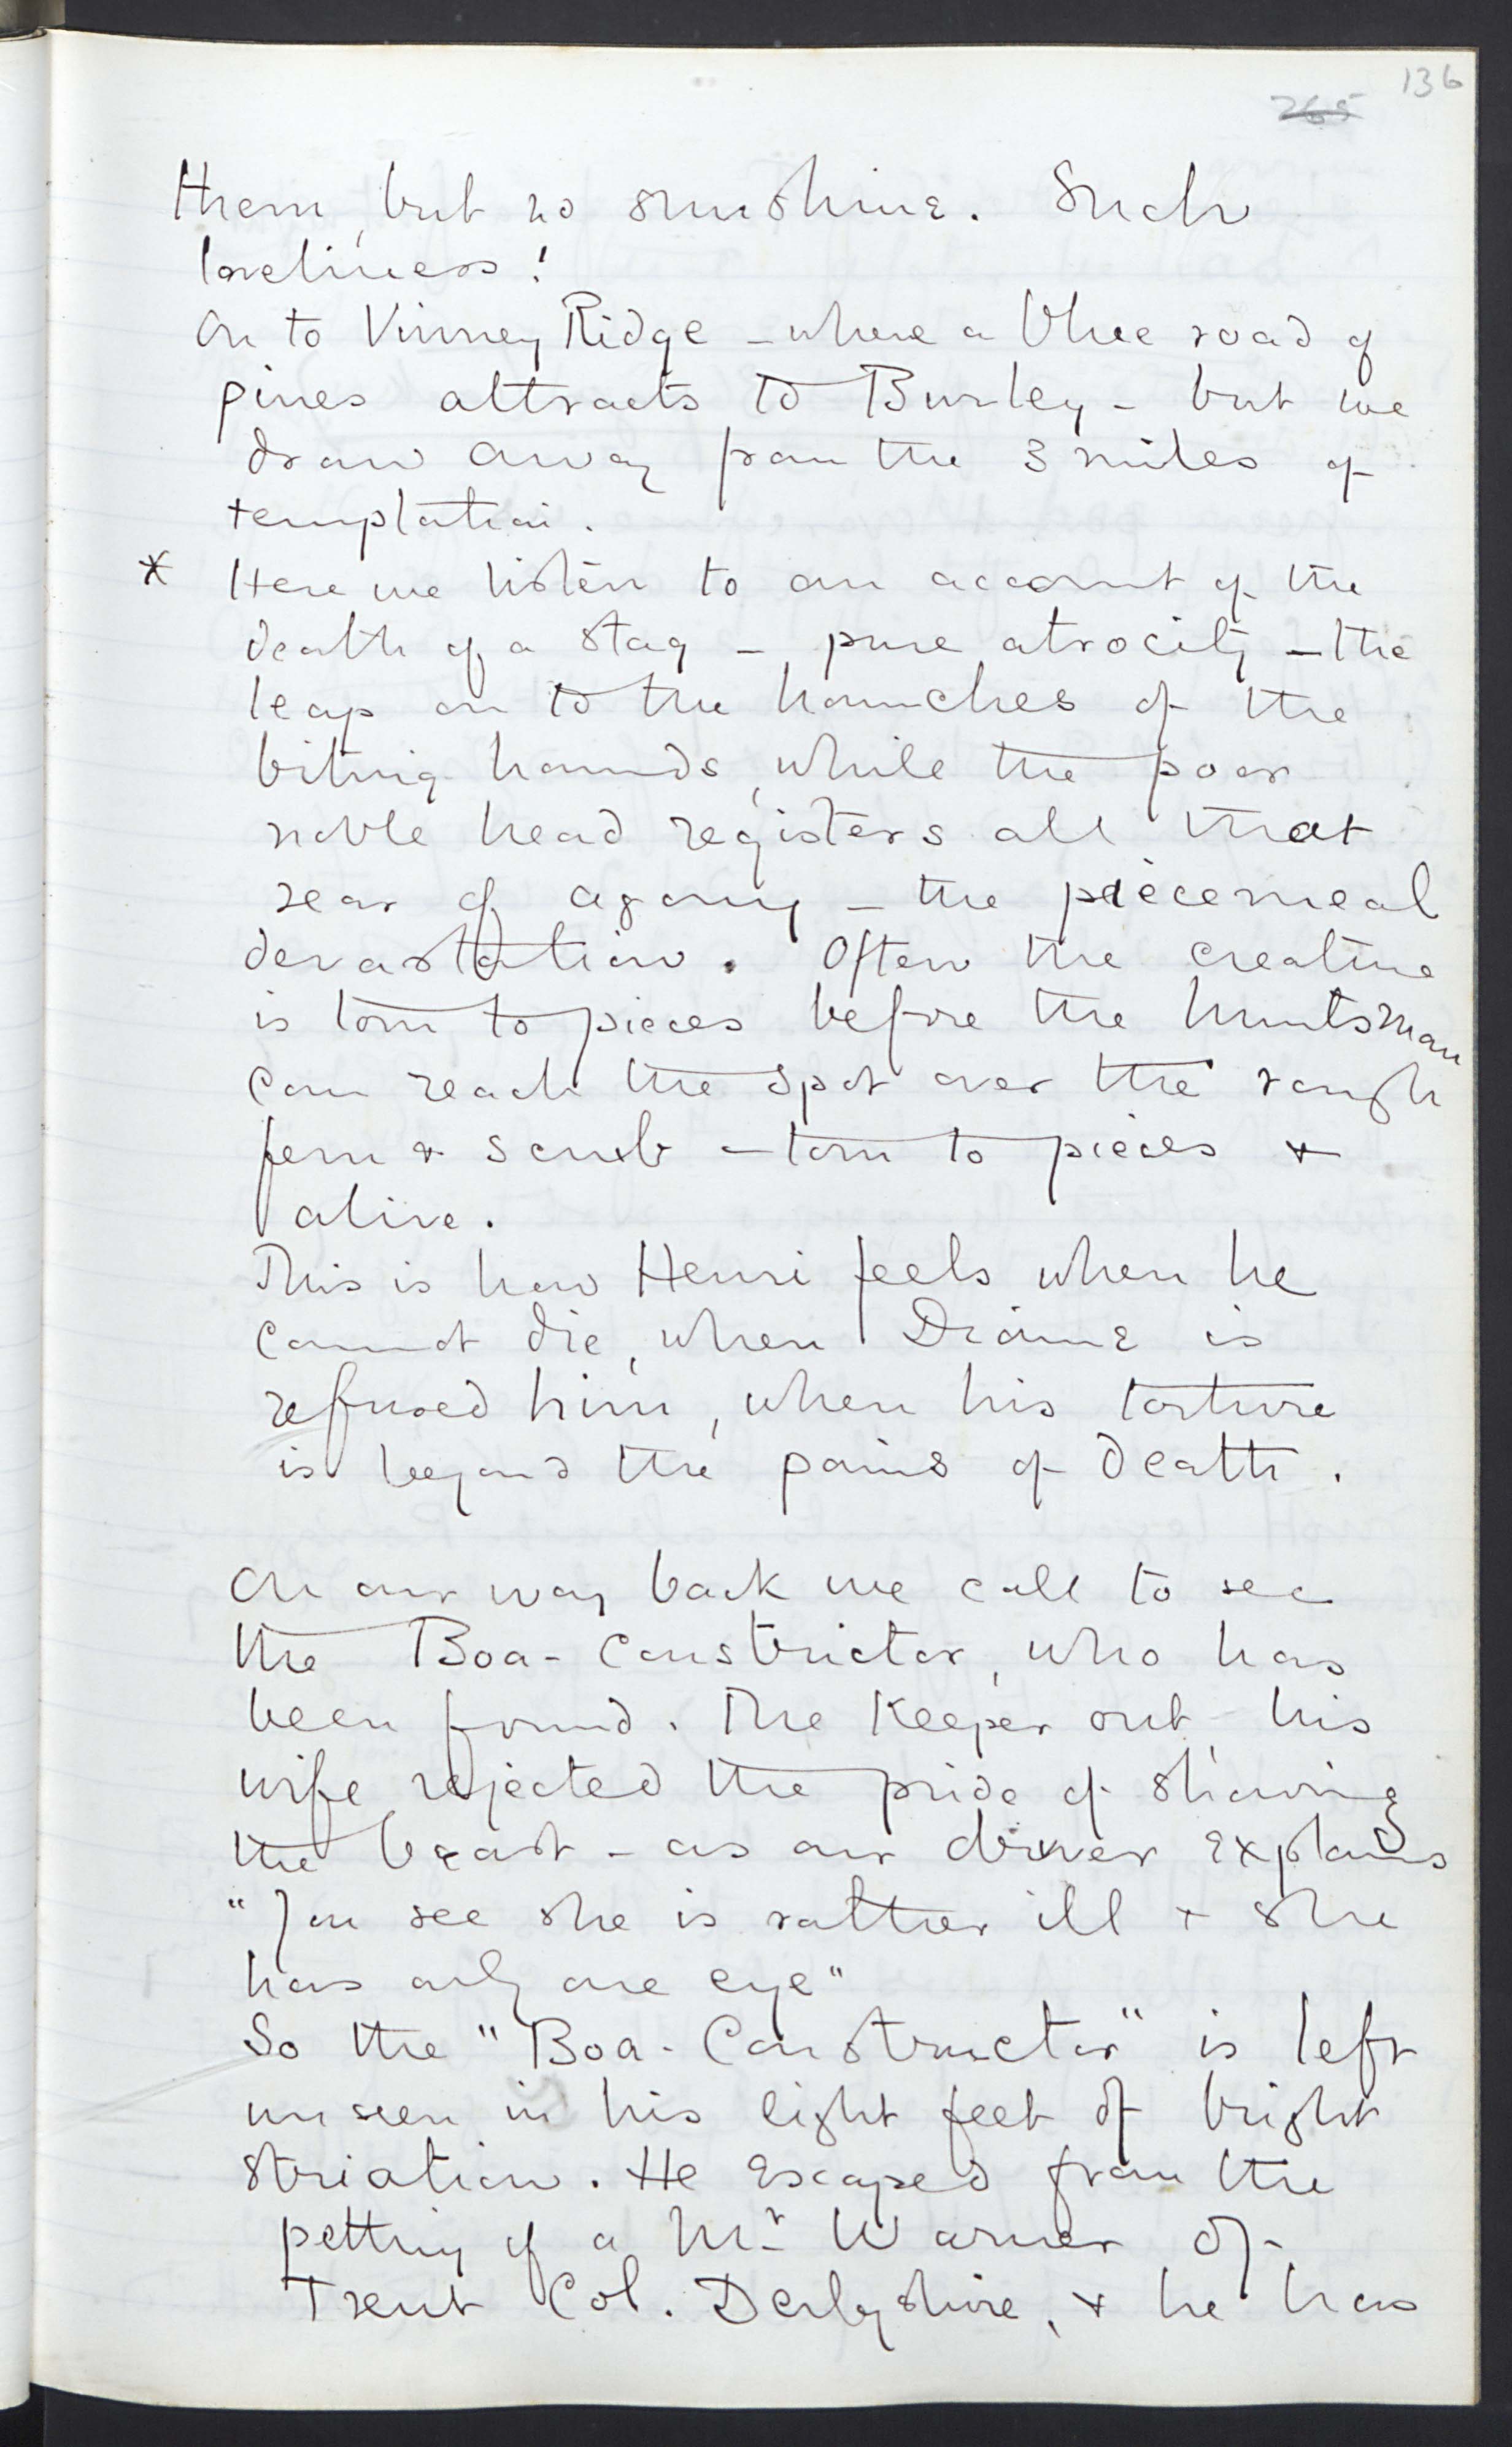 136
265
them, but no sunshine. Such
loveliness!
On to Vinney Ridge – where a blue road of
pines attracts to Burley – but we
draw away from the 3 miles of
temptation.
* Here we listen to an account of the
death of a stag – pure atrocity – the
leap on to the haunches of the
biting hounds, while the poor
noble head registers all that
year of agony – the piecemeal
devastation. Often the creature
is torn to pieces before the huntsman
can reach the spot over the rough
fern & scrub – torn to pieces &
alive.
This is how Henri feels when he
cannot die, when Diane is
refused him, when his torture
is beyond the pains of death.
On our way back we call to see
the Boa-Constrictor, who has
been found. The Keeper out, his
wife rejected the pride of showing
the beast – as our driver explains
"You see she is rather ill & she
has only one eye"
So the "Boa-Constructor" is left
unseen in his eight feet of bright
striation. He escaped from the
petting of a Mr Warner of
Trent Col. Derbyshire, & he has